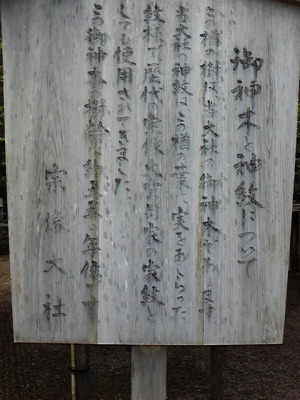 御神木と神紋について
この楢の樹は当大社の御神木であります
当大社の神紋はこの楢の葉、実をあしらった
紋様で歴代の宗像大宮司家の家紋と
しても使用されてきました
この御神木の樹齢は約五百五十年位です
宗像大社